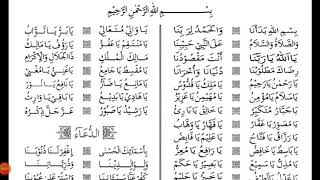 بِسْــمِ اللهِ الرَّحْمٰنِ الرَّحِيْمِ
بِسْمِ اللهِ بَدَأْنَا وَالْحَمْدُ لِرَبِّنَا
وَالصَّلَاةُ وَالسَّلَامُ عَلَى النَّبِيِّ حَبِيْبِنَا
يَا اَللهُ يَا رَبَّنَا أَنْتَ مَقْصُوْدُنَا
رِضَاكَ مَطْلُوْبُنَا دُنْيَانَا وَأُخْرَانَا
يَا رَحْمٰنُ يَا رَحِيْمُ يَا مَلِكُ يَا قُدُّوْسُ
يَا سَلَامُ يَا مُؤْمِنُ يَا مُهَيْمِنُ يَا عَزِيْزُ
يَا جَبَّارُ مُتَكَبِّرُ يَا خَالِقُ يَا بَارِئُ
يَا مُصَوِّرُ يَا غَفَّارُ يَا قَهَّارُ يَا وَهَّابُ
يَا رَزَّاقُ يَا فَتَّاحُ يَا عَلِيْمُ يَا قَابِضُ
يَا بَاسِطُ يَا خَافِضُ يَا رَافِعُ يَا مُعِزُّ
يَا مُذِلُّ يَا سَمِيْعُ يَا بَصِيْرُ يَا حَكَمُ
يَا وَالِيْ مُتَعَالِيْ يَا بَرُّ يَا تَوَّابُ
يَا مُنْتَقِمُ يَا عَفُوُّ يَا رَؤُوْفُ يَا مَالِكُ
مَالِكَ الْمُلْكِ ذَا الْجَلَالِ وَالْإِكْرَامِ
يَا مُقْسِطُ يَا جَامِعُ يَا غَنِيُّ يَا مُغْنِيْ
يَا مَانِعُ يَا ضَارُّ يَا نَافِعُ يَا نُوْرُ
يَا هَادِيْ يَا بَدِيْعُ يَا بَاقِيْ يَا وَارِثُ
يَا رَشِيْدُ يَا صَبُوْرُ عَزَّ جَلَّ ذِكْرُهُ
الدُّعَاءُ
بِأَسْمَائِكَ الْحُسْنٰى اِغْفِرْ لَنَا ذُنُوْبَنَا
وَلِوَالِدِيْنَا وَذُرِّيَّاتِنَا
كَفِّرْ عَنْ سَيِّئَاتِنَا وَاسْتُرْ عَلٰى عُيُوْبِنَا